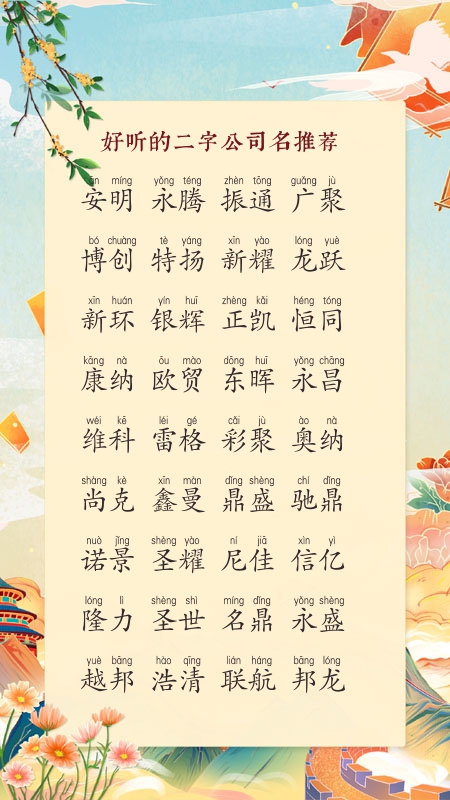 好听的二字公司名推荐
ān míng yǒng téng zhèn tōng guǎng jù
安明 永腾 振通 广聚
bó chuàng tè yáng xīn yào lóng yuè
博创 特扬 新耀 龙跃
xīn huán yín huī zhèng kǎi héng tóng
新环 银辉 正凯 恒同
kāng nà ōu mào dōng huī yǒng chāng
康纳 欧贸 东晖 永昌
wéi kē léi gé cǎi jù ào nà
维科 雷格 彩聚 奥纳
shàng kè xīn màn dǐng shèng chí dǐng
尚克 鑫曼 鼎盛 驰鼎
nuò jǐng shèng yào ní jiā xìn yì
诺景 圣耀 尼佳 信亿
lóng lì shèng shì míng dǐng yǒng shèng
隆力 圣世 名鼎 永盛
yuè bāng hào qīng lián háng bāng lóng
越邦 浩清 联航 邦龙